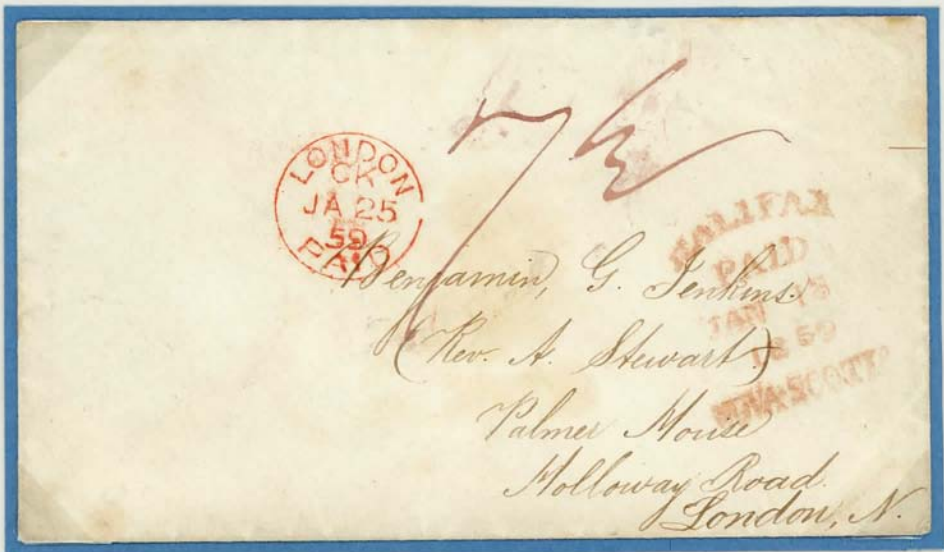 7½
LONDON
CK
JA 25
59
PAID
HALIFAX
PAID
JAN
1859
NOVA SCOTIA
Benjamin, G. Jenkins.
(Rev. A. Stewart)
Palmer House
Holloway Road.
London, N.